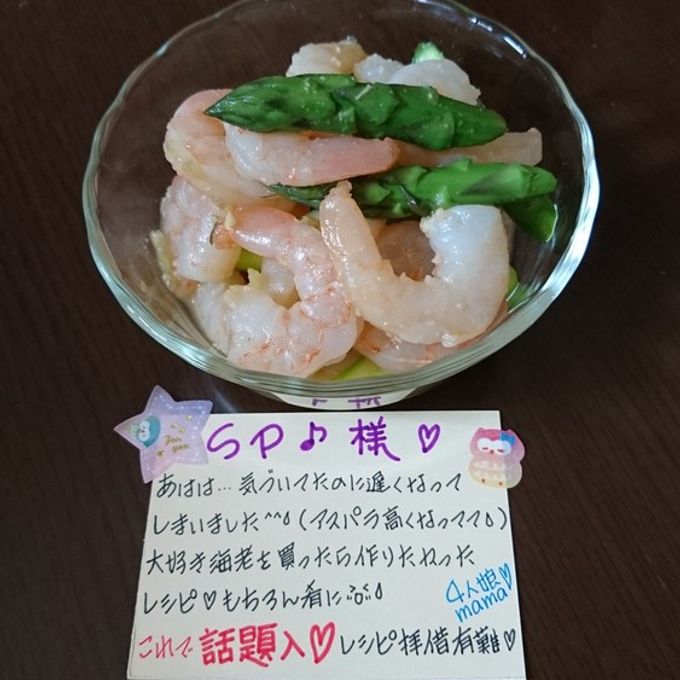 SP♪様♡
あはは…気づいてたのに遅くなって
しまいました^^💧(アスパラ高くなってて💧)
大好き海老を買ったら作りたかった
レシピ♡もちろん肴に
4人娘♡
mama
これで話題入♡レシピ拝借有難♡